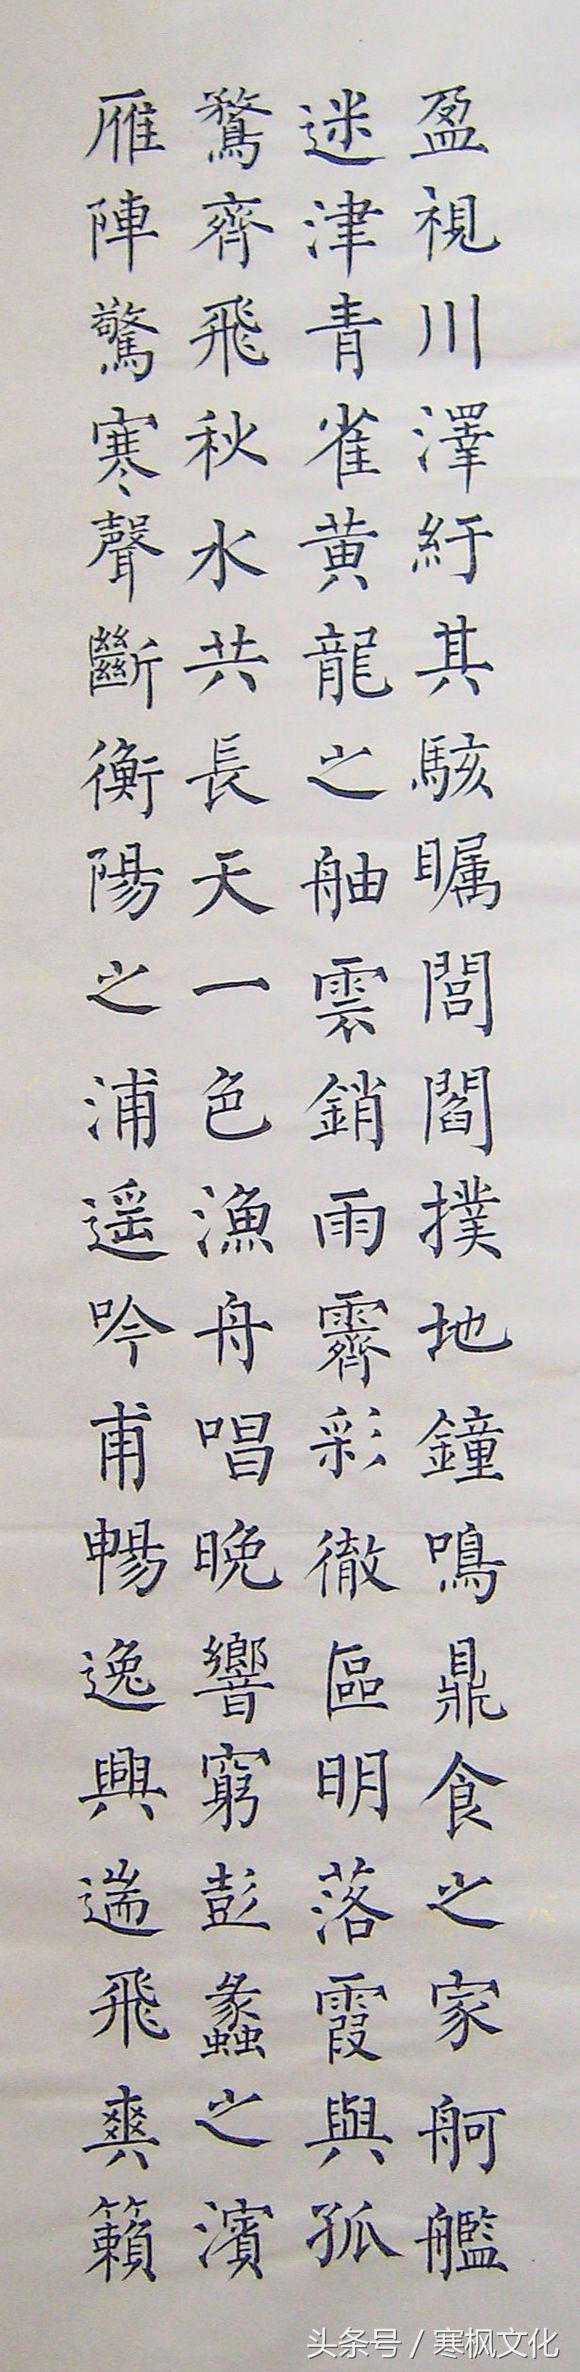 盈視川澤紆其駭矚閭閻撲地鐘鳴鼎食之家舸艦
迷津青雀黄龍之舳雲銷雨霽彩徹區明落霞與孤
鶩齊飛秋水共長天一色漁舟唱晚響窮彭蠡之濱
雁陣驚寒聲斷衡陽之浦遥吟甫暢逸興遄飛爽籟
头条号/寒枫文化